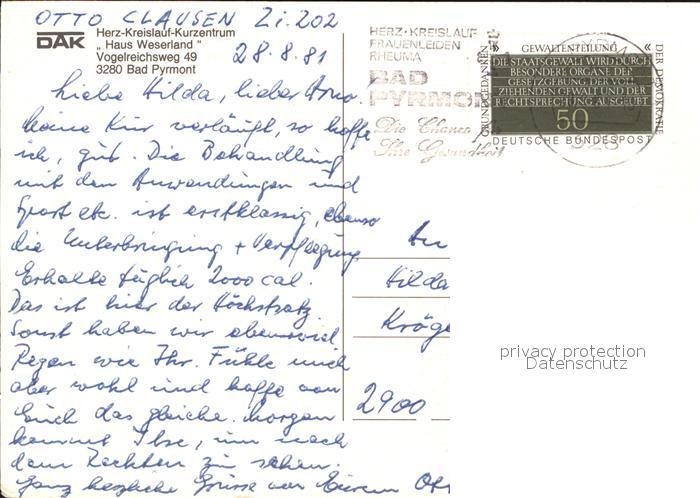 OTTO CLAUSEN Zi. 202
DAK Herz-Kreislauf-Kurzentrum
„Haus Weserland"
Vogelreichsweg 49
3280 Bad Pyrmont
28.8.81
Liebe Hilda, lieber Arno.
Meine Kur verläuft, so hoffe
ich, gut. Die Behandlung
mit den Anwendungen und
Sport etc. ist erstklassig, ebenso
die Unterbringung + Verpflegung
Erhalte täglich 2000 cal.
Das ist hier der Höchstsatz.
Sonst haben wir ebensoviel
Regen wie Ihr. Fühle mich
aber wohl und hoffe von
Euch das gleiche. Morgen
kommt Ilse, um nach
dem Rechten zu sehen.
Ganz herzliche Grüsse von Eurem Ot
HERZ-KREISLAUF
FRAUENLEIDEN
RHEUMA
BAD
PYRMO
Die Chance
Ihre Gesundheit
» GEWALTENTEILUNG «
GRUNDGEDANKEN
DER DEMOKRATIE
DIE STAATSGEWALT WIRD DURCH
BESONDERE ORGANE DER
GESETZGEBUNG, DER VOLL
ZIEHENDEN GEWALT UND DER
RECHTSPRECHUNG AUSGEÜBT
50
DEUTSCHE BUNDESPOST
An
Hilda
Kröge
2900
privacy protection
Datenschutz